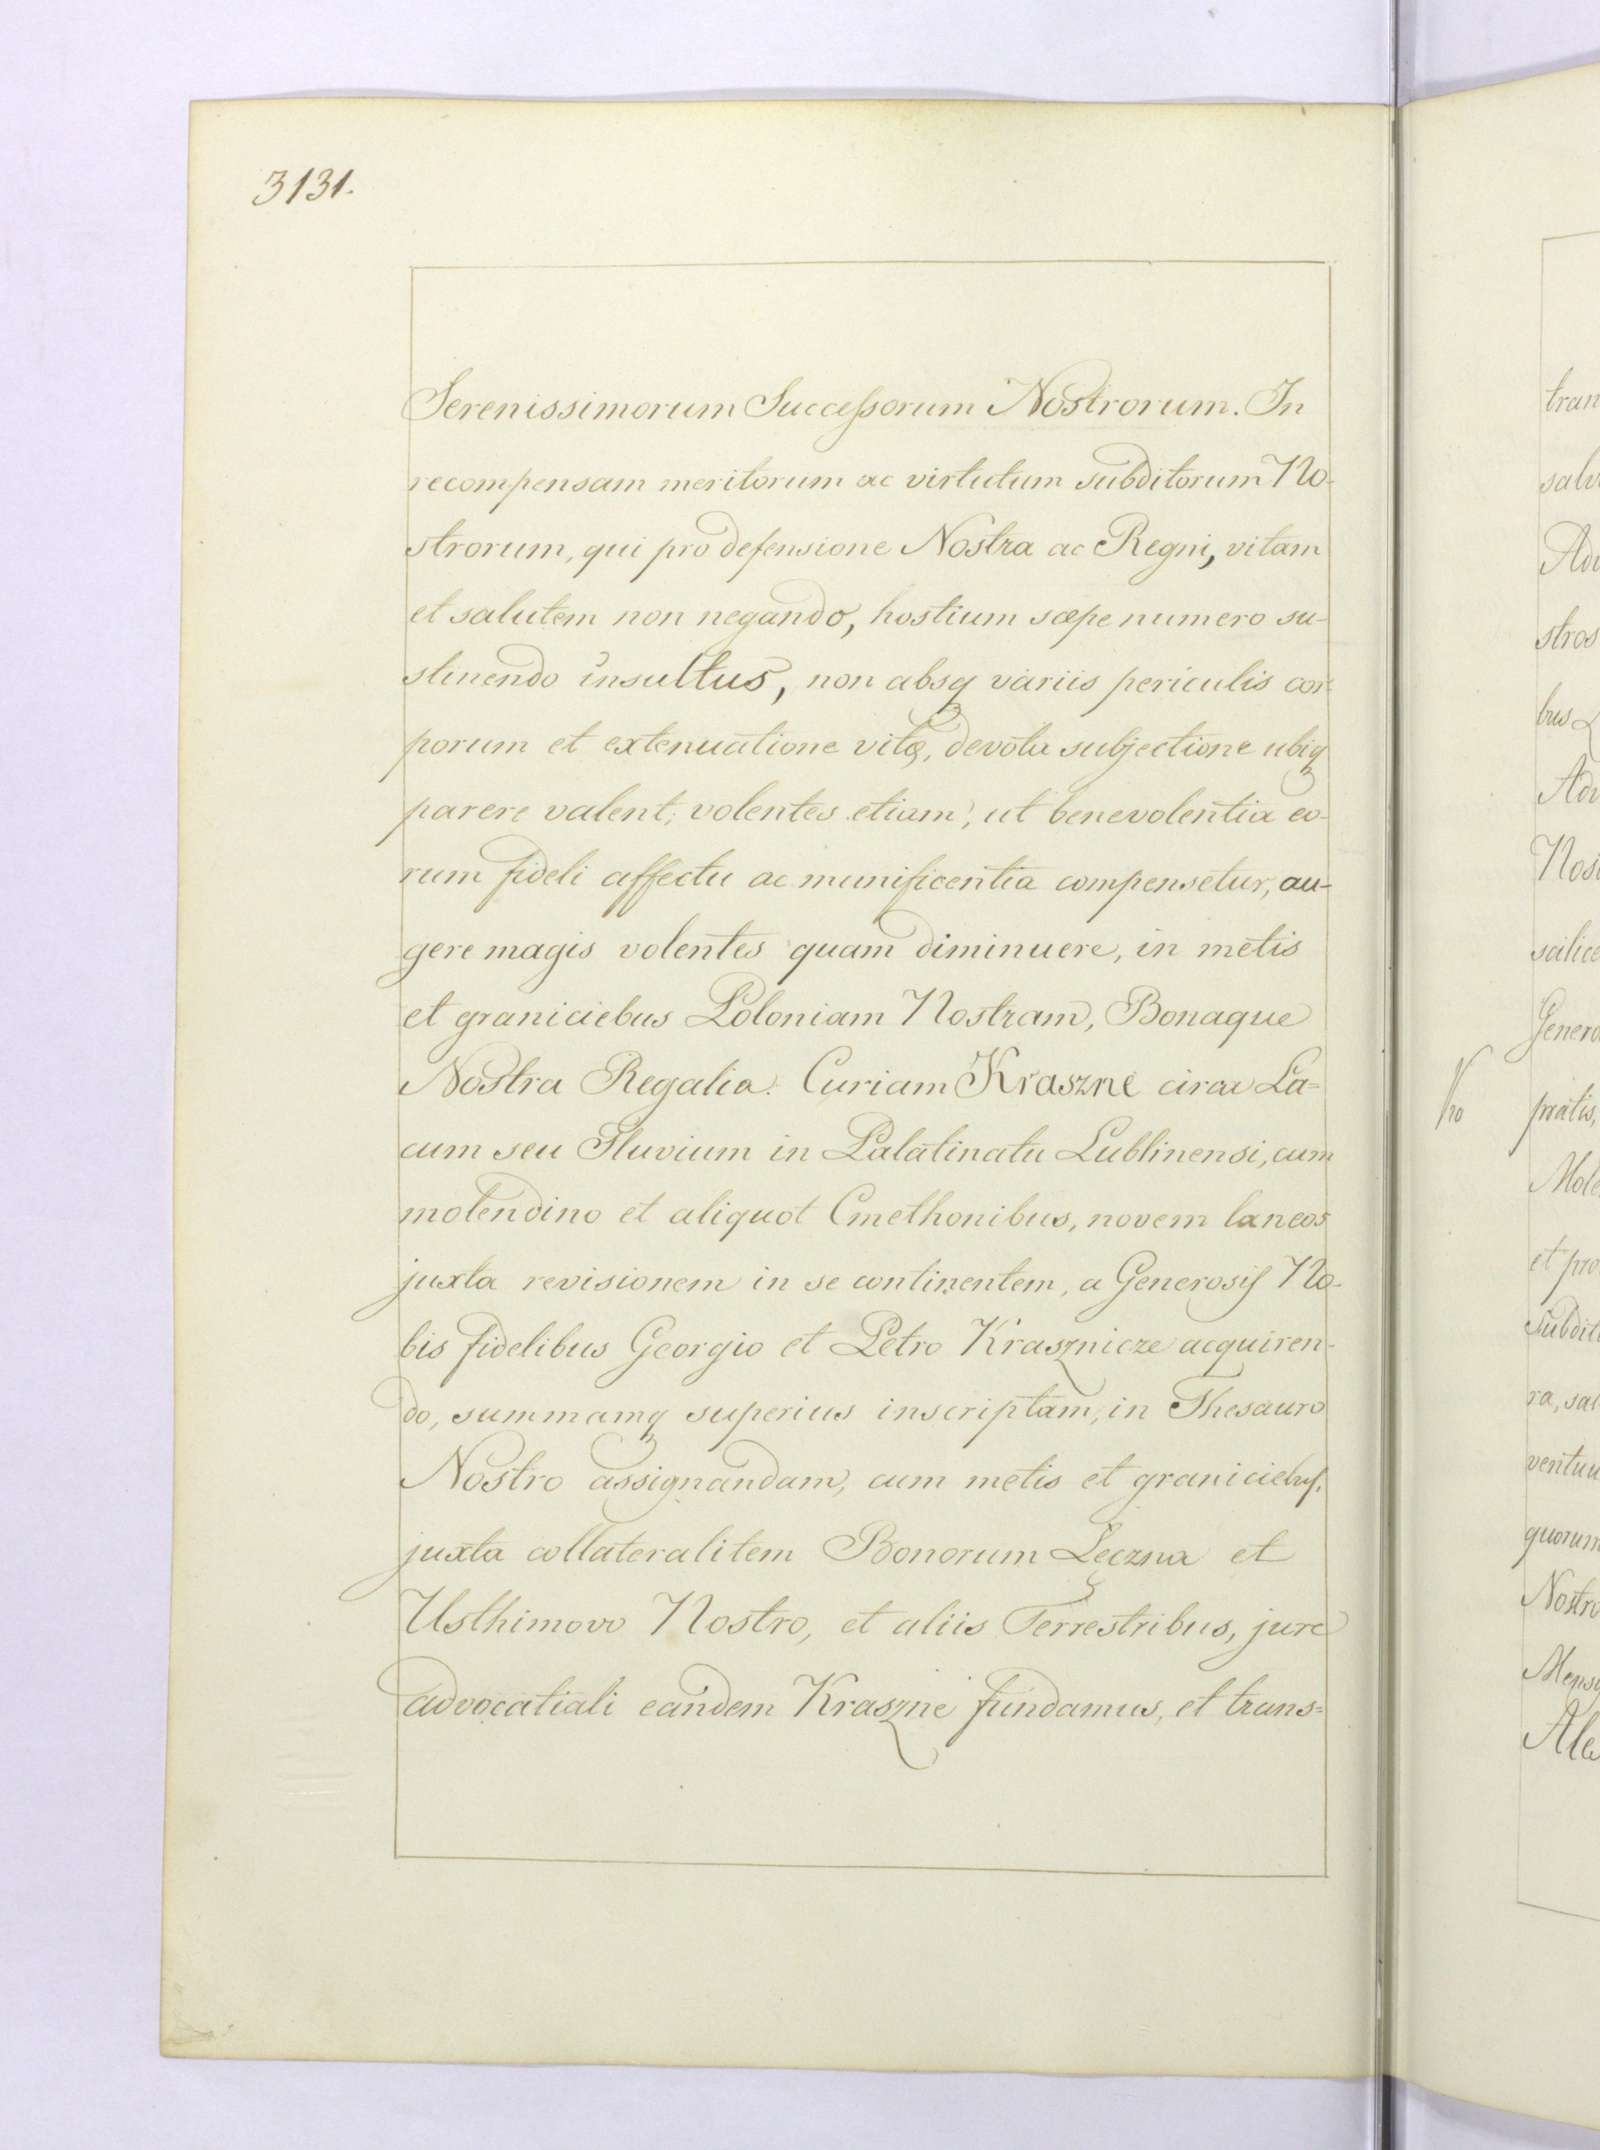 3131.
Serenissimorum Successorum Nostrorum. In
recompensam meritorum ac virtutum subditorum No-
strorum, qui pro defensione Nostra ac Regni, vitam
et salutem non negando, hostium sæpe numero su-
stinendo insultus, non absq variis periculis cor-
porum et extenuatione vitę, devota subjectione ubiq
parere valent; volentes etiam, ut benevolentia eo-
rum fideli affectu ac munificentia compensetur, au-
gere magis volentes quam diminuere, in metis
et graniciebus Poloniam Nostram, Bonaque
Nostra Regalia: Curiam Kraszne circa La=
cum seu Fluvium in Palatinatu Lublinensi, cum
molendino et aliquot Cmethonibus, novem laneos
juxta revisionem in se continentem, a Generosis No-
bis fidelibus Georgio et Petro Krasznicze acquiren-
do, summamq superius inscriptam, in Thesauro
Nostro assignandam, cum metis et graniciebus,
juxta collateralitem Bonorum Lęczna et
Usthimovo Nostro, et aliis Terrestribus, jure
advocatiali eandem Kraszne fundamus, et trans=
tran
salv
Adv
stros
bus
Adv
Nos
scilice
Genero
pratis,
Mole
et pro
Subdit
ra, sal
ventuu
quorum
Nostro
Ale